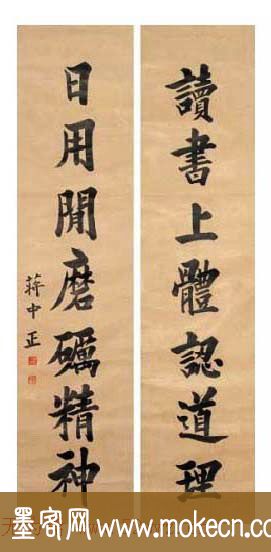 讀書上體認道理
日用閒磨礪精神
蔣中正
墨客网 www.mokecn.com